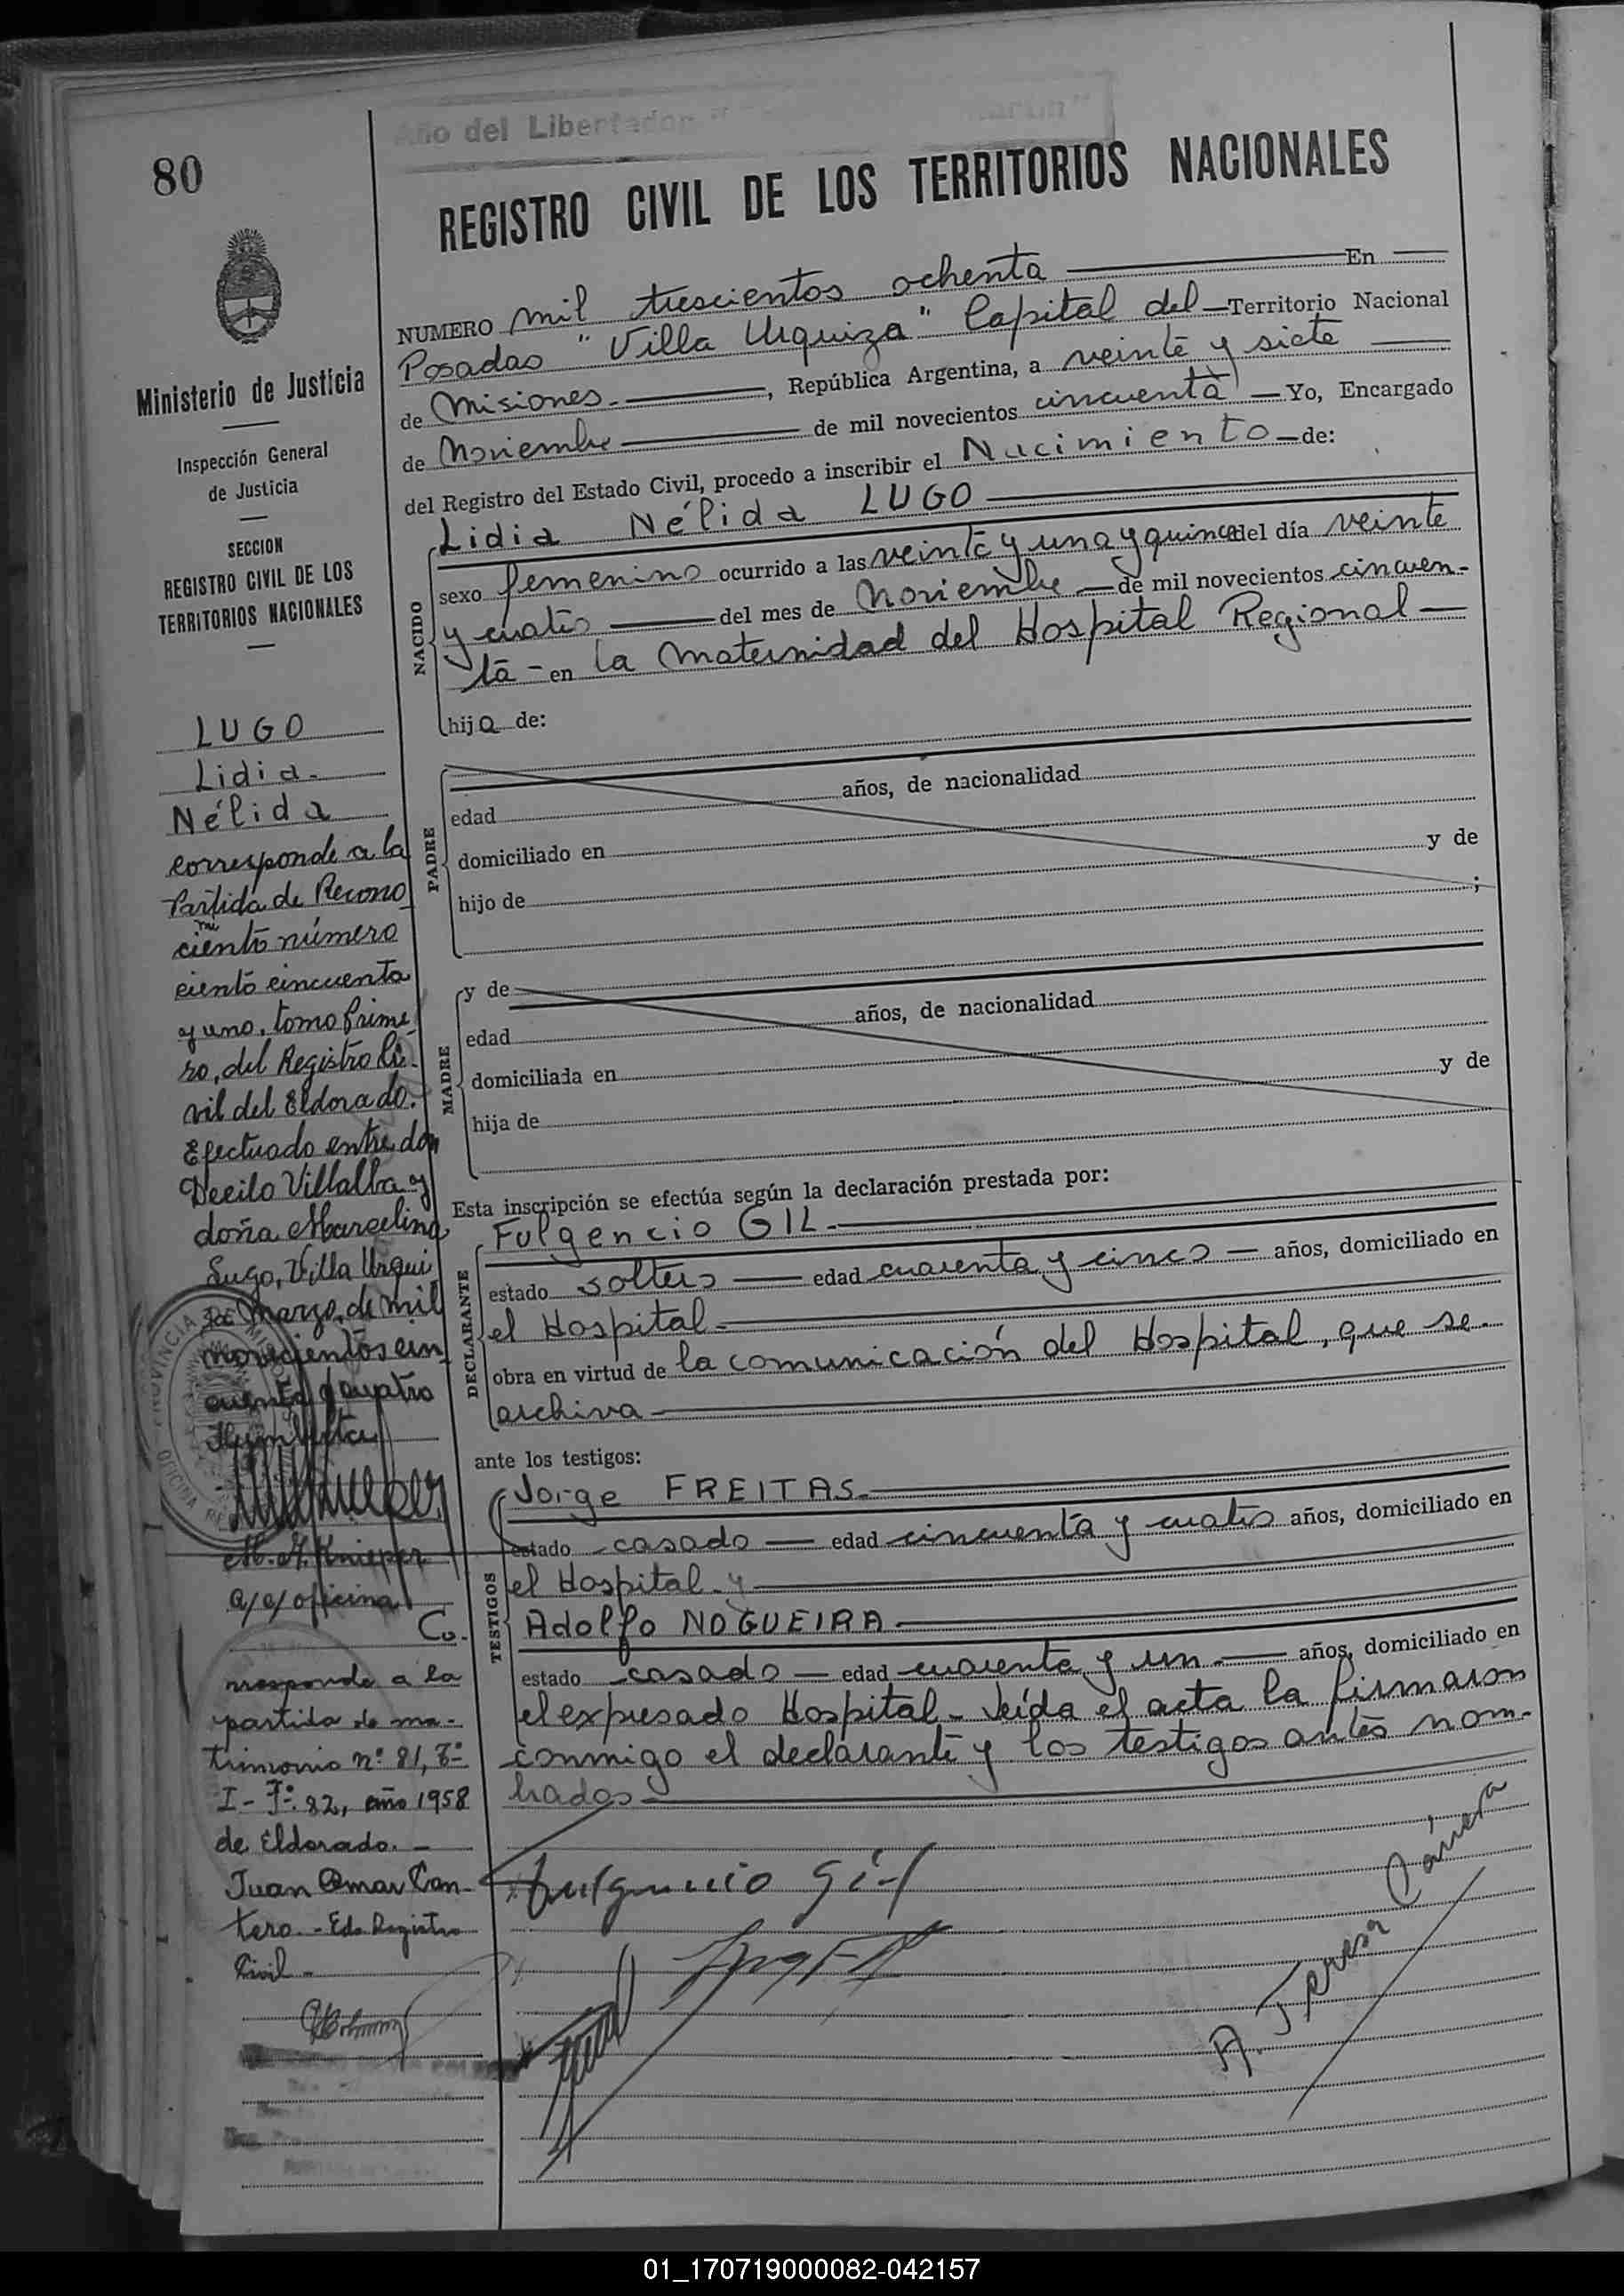 Año del Libertador
80
REGISTRO CIVIL DE LOS TERRITORIOS NACIONALES
Ministerio de Justicia
Inspección General
de Justicia
SECCION
REGISTRO CIVIL DE LOS
TERRITORIOS NACIONALES
LUGO
Lidia.
Nélida
corresponde a la
Partida de Recono
ciento número
mi
ciento cincuenta
y uno, tomo prime
ro, del Registro Ci-
vil del Eldorado.
Efectuado entre don
Decilo Villalba y
doña Marcelina
Lugo, Villa Urqui
za Marzo, de mil
novecientos cin
cuenta y cuatro
M. Knieper
a/c/ oficina
Co.
rresponde a la
partida de ma-
trimonio nº 81, Tº
I - Fº 82, año 1958
de Eldorado. -
Juan Omar Can-
tero. - Edo Registro
Civil -
NUMERO mil trescientos ochenta En
Posadas "Villa Urquiza" Capital del Territorio Nacional
de Misiones. , República Argentina, a veinte y siete
de Noviembre de mil novecientos cincuenta Yo, Encargado
del Registro del Estado Civil, procedo a inscribir el Nacimiento de:
NACIDO
Lidia Nélida LUGO
sexo femenino ocurrido a las veinte y una y quince del día veinte
y cuatro del mes de Noviembre de mil novecientos cincuen-
ta - en la Maternidad del Hospital Regional
hija de:
PADRE
edad años, de nacionalidad
domiciliado en
hijo de y de
;
MADRE
y de
edad años, de nacionalidad
domiciliada en
hija de y de
Esta inscripción se efectúa según la declaración prestada por:
DECLARANTE
Fulgencio GIL.
estado soltero edad cuarenta y cinco años, domiciliado en
el Hospital.
obra en virtud de la comunicación del Hospital, que se
archiva
ante los testigos:
TESTIGOS
Jorge FREITAS.
estado casado edad cincuenta y cuatro años, domiciliado en
el Hospital. y
Adolfo NOGUEIRA
estado casado edad cuarenta y un años, domiciliado en
el expresado Hospital - Leída el acta la firmaron
conmigo el declarante y los testigos antes nom-
brados
Fulgencio Gil
01_170719000082-042157